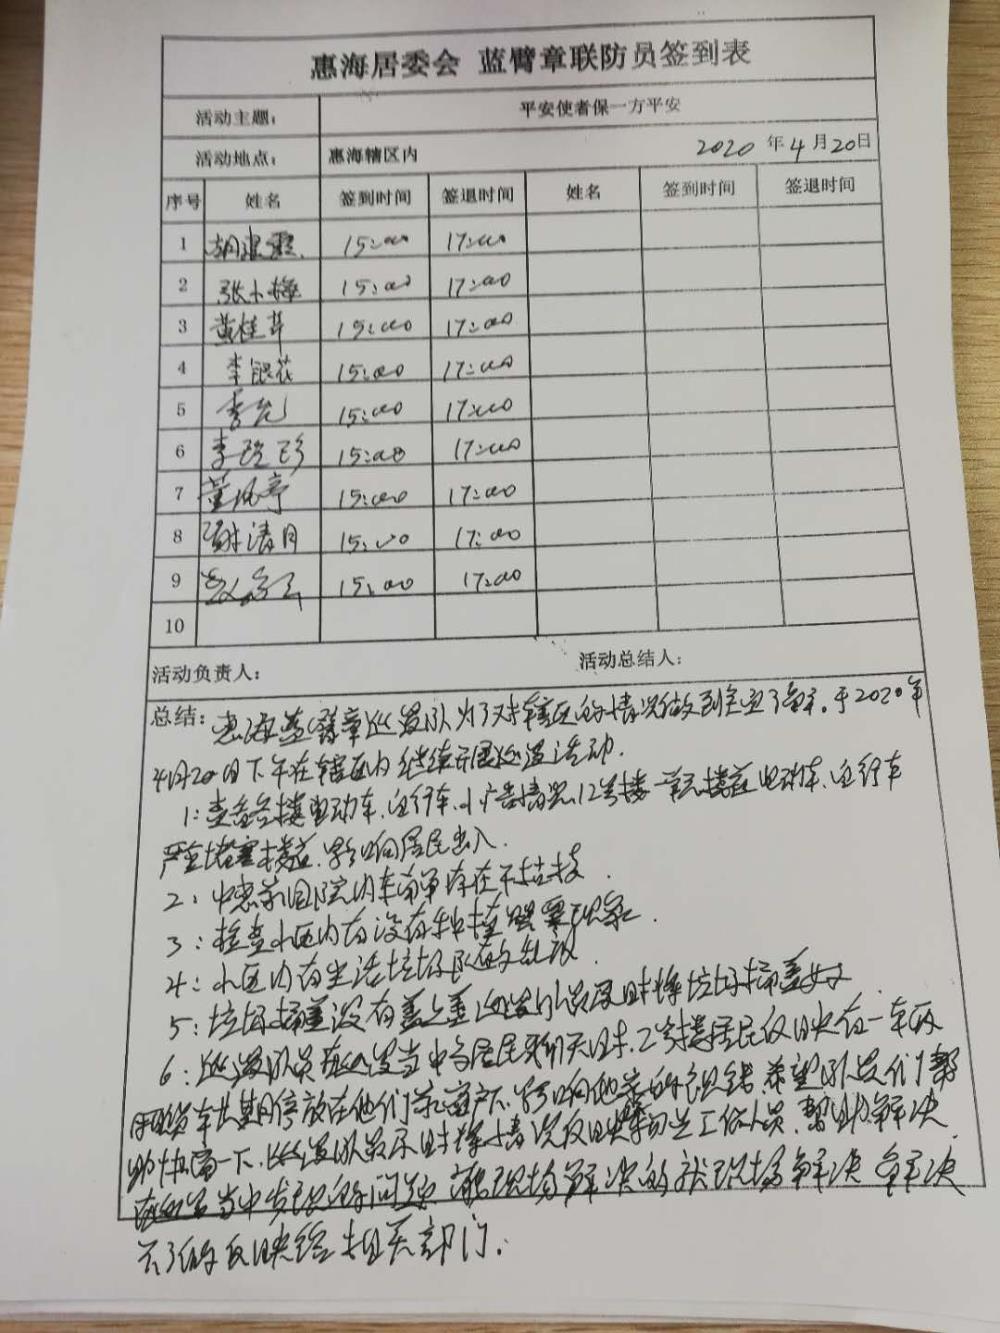 惠海居委会 蓝臂章联防员签到表
活动主题： 平安使者保一方平安
活动地点： 惠海辖区内 2020 年 4 月 20 日
序号 姓名 签到时间 签退时间 姓名 签到时间 签退时间
1 胡建霞 15:00 17:00
2 张小梅 15:00 17:00
3 黄桂萍 15:00 17:00
4 李银花 15:00 17:00
5 15:00 17:00
6 李 珍 15:00 17:00
7 董凤亭 15:00 17:00
8 谢清月 15:00 17:00
9 15:00 17:00
10
活动负责人： 活动总结人：
总结：惠海蓝臂章巡逻队为了对辖区的情况做到全面了解。于2020年
4月20日下午在辖区内继续开展巡逻活动.
1:查各楼电动车、自行车、小广告情况.12号楼一单元楼道电动车、自行车
严重堵塞楼道.影响居民出入.
2:中惠家园院内车辆
3:检查小区内有没有种植罂粟现象.
4:小区内有生活垃圾 乱放
5:垃圾桶盖没有盖上盖巡逻队员及时将垃圾桶盖好
6:巡逻队员在巡逻当中与居民聊天时.2号楼居民反映有一车辆
货车长期停放在他们家窗户下.影响他家的 希望队员们帮
助协调一下.巡逻队员及时将情况反映 工作人员.帮助解决.
在巡逻当中发现的问题 能现场解决的就现场解决 解决
不了的反映给相关部门.